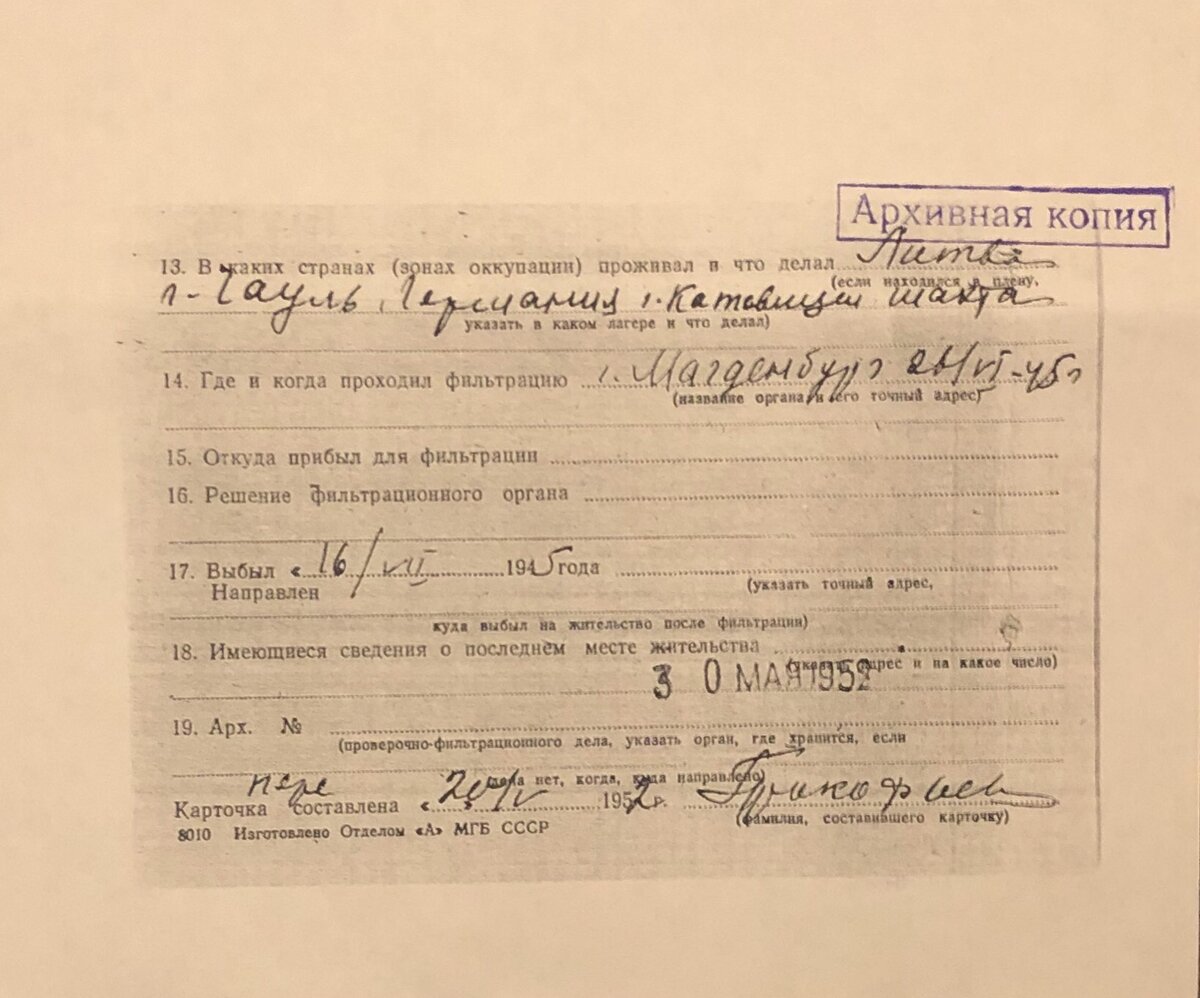 Архивная копия
13. В каких странах (зонах оккупации) проживал и что делал Литва
(если находился в плену,
г. Германия г. Катовицы шахта
указать в каком лагере и что делал)
14. Где и когда проходил фильтрацию г. Магденбург VI-45г
(название органа и его точный адрес)
15. Откуда прибыл для фильтрации
16. Решение фильтрационного органа
17. Выбыл « 16/VII 1945 года
(указать точный адрес,
Направлен
куда выбыл на жительство после фильтрации)
18. Имеющиеся сведения о последнем месте жительства
(указать адрес и на какое число)
30 МАЯ 1952
19. Арх. №
(проверочно-фильтрационного дела, указать орган, где хранится, если
дела нет, когда, куда направлено)
пере
Карточка составлена « 20/IV 1952 г. Прокофьев
(фамилия, составившего карточку)
8010 Изготовлено Отделом «А» МГБ СССР